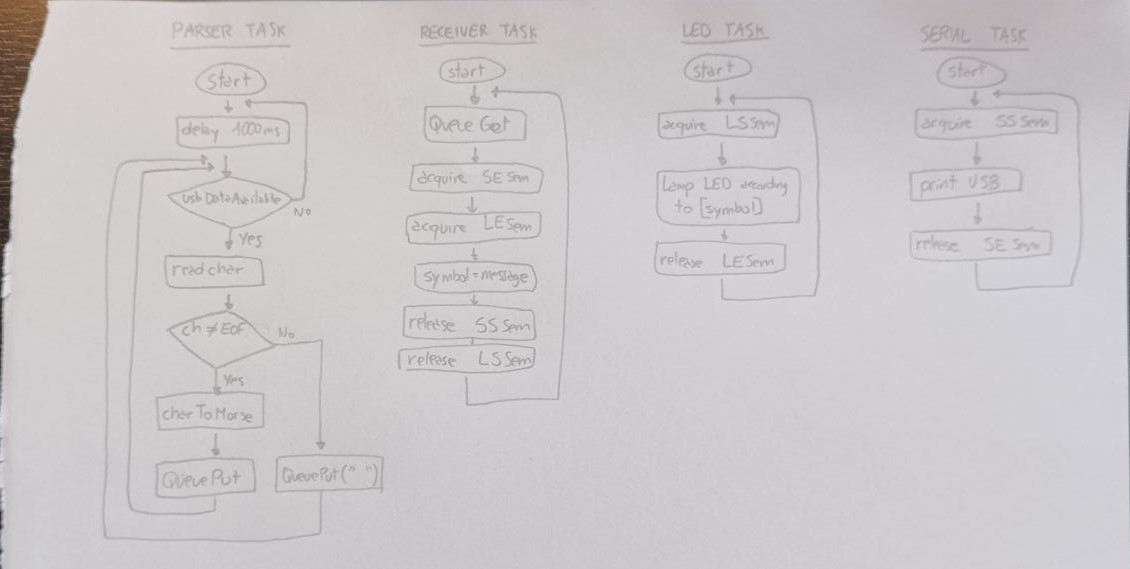 PARSER TASK
Start
delay 1000ms
usb Data Available
No
Yes
read char
ch ≠ EOF
No
Yes
char To Morse
Queue Put
Queue Put (" ")
RECEIVER TASK
start
Queue Get
acquire SE Sem
acquire LE Sem
symbol = message
release SS Sem
release LS Sem
LED TASK
start
acquire LS Sem
Lamp LED according
to [symbol]
release LE Sem
SERIAL TASK
start
acquire SS Sem
print USB
release SE Sem